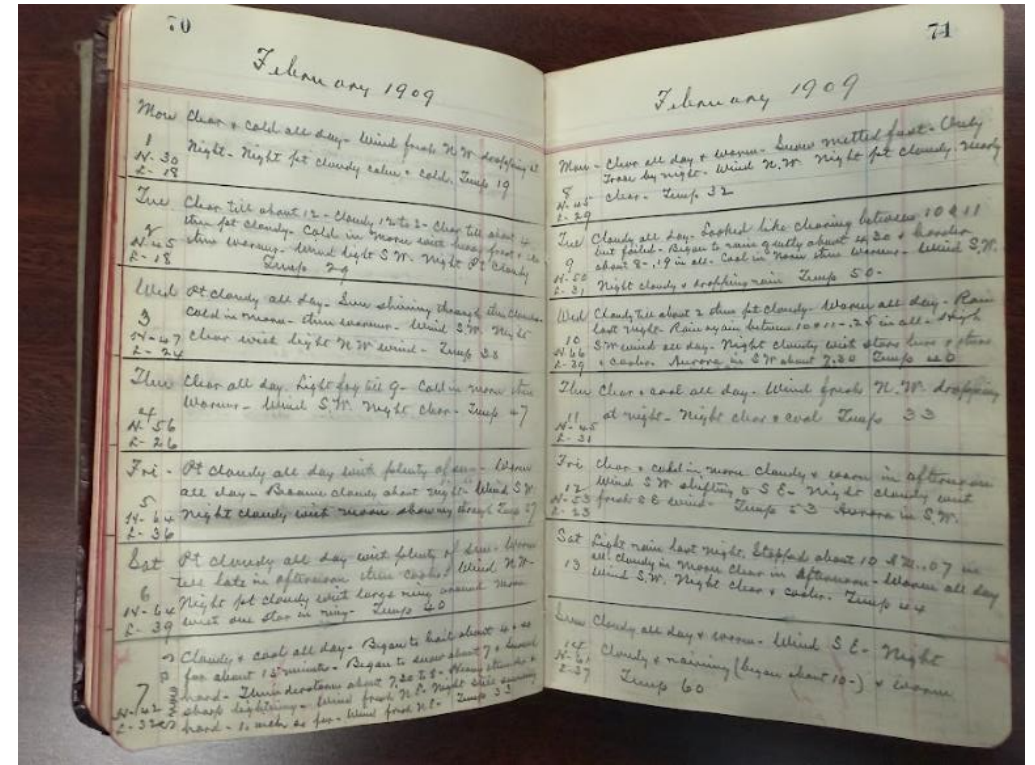 70
February 1909
Mon Clear & cold all day - Wind fresh N.W. dropping at
1 Night - Night pt cloudy calm & cold. Temp 19
H - 30
L - 18
Tue Clear till about 12 - Cloudy 12 to 2 - Clear till about 4
2 then pt cloudy - Cold in morn with heavy frost &
H - 45 then warmer - Wind light S.W. Night Pt Cloudy
L - 18 Temp 29
Wed Pt cloudy all day - Sun shining through the clouds -
3 Cold in morn - then warmer - Wind S.W. Night
H - 47 clear with light N.W. wind - Temp 38
L - 24
Thu Clear all day. Light fog till 9 - Cold in morn then
4 warmer - Wind S.W. Night clear - Temp 47
H - 56
L - 26
Fri - Pt cloudy all day with plenty of sun - Warm
5 all day - Became cloudy about night - Wind S.W.
H - 64 Night cloudy with moon showing through Temp 57
L - 36
Sat Pt cloudy all day with plenty of sun - Warm
6 till late in afternoon then cooler. Wind N.W.
H - 64 Night pt cloudy with large ring around moon
L - 39 with one star in ring - Temp 40
Cloudy & cool all day - Began to hail about
7 for about 15 minutes - Began to snow about 7 &
H - 42 hard - Thunderstorm about 7.30 to 8 - Heavy thunder &
L - 32 sharp lightning - Wind fresh N.E. Night still snowing
hard - 1. inch so far - Wind fresh N.E. - Temp 33
71
February 1909
Mon - Clear all day & warm - Snow melted fast - Only
8 Trace by night - Wind N.W. Night pt cloudy nearly
H - 45 clear - Temp 32
L - 29
Tue Cloudy all day - Looked like clearing between 10 & 11
9 but failed - Began to rain gently about 4.30 & harder
H - 50 about 8 - .19 in all - Cool in morn then warmer - Wind S.W.
L - 31 Night cloudy & dropping rain Temp 50 -
Wed Cloudy till about 2 then pt cloudy - Warm all day - Rain
10 last night - Rain again between 10 & 11 - .25 in all - High
H - 66 S.W wind all day - Night cloudy with stars here & there
L - 39 & cooler. Aurora in S.W about 7.30 Temp 40
Thu Clear & cool all day - Wind fresh N.W. dropping
11 at night - Night clear & cool Temp 33
H - 45
L - 31
Fri Clear & cold in morn cloudy & warm in afternoon
12 Wind S.W shifting to S.E - Night cloudy with
H - 53 fresh S.E wind - Temp 53 Aurora in S.W.
L - 23
Sat Light rain last night. Stopped about 10 A.M. .07 in
13 all. Cloudy in morn clear in afternoon - Warm all day
Wind S.W. Night clear & cooler - Temp 44
Sun Cloudy all day & warm - Wind S.E - Night
14 Cloudy & raining (began about 10 -) & warm
H - 61 Temp 60
L - 37